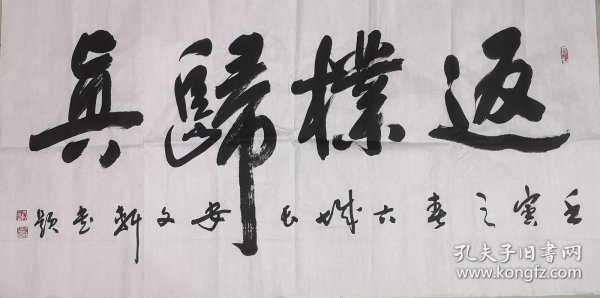 返樸歸真
壬寅之春古城長安文軒志題
孔夫子旧书网
www.kongfz.com